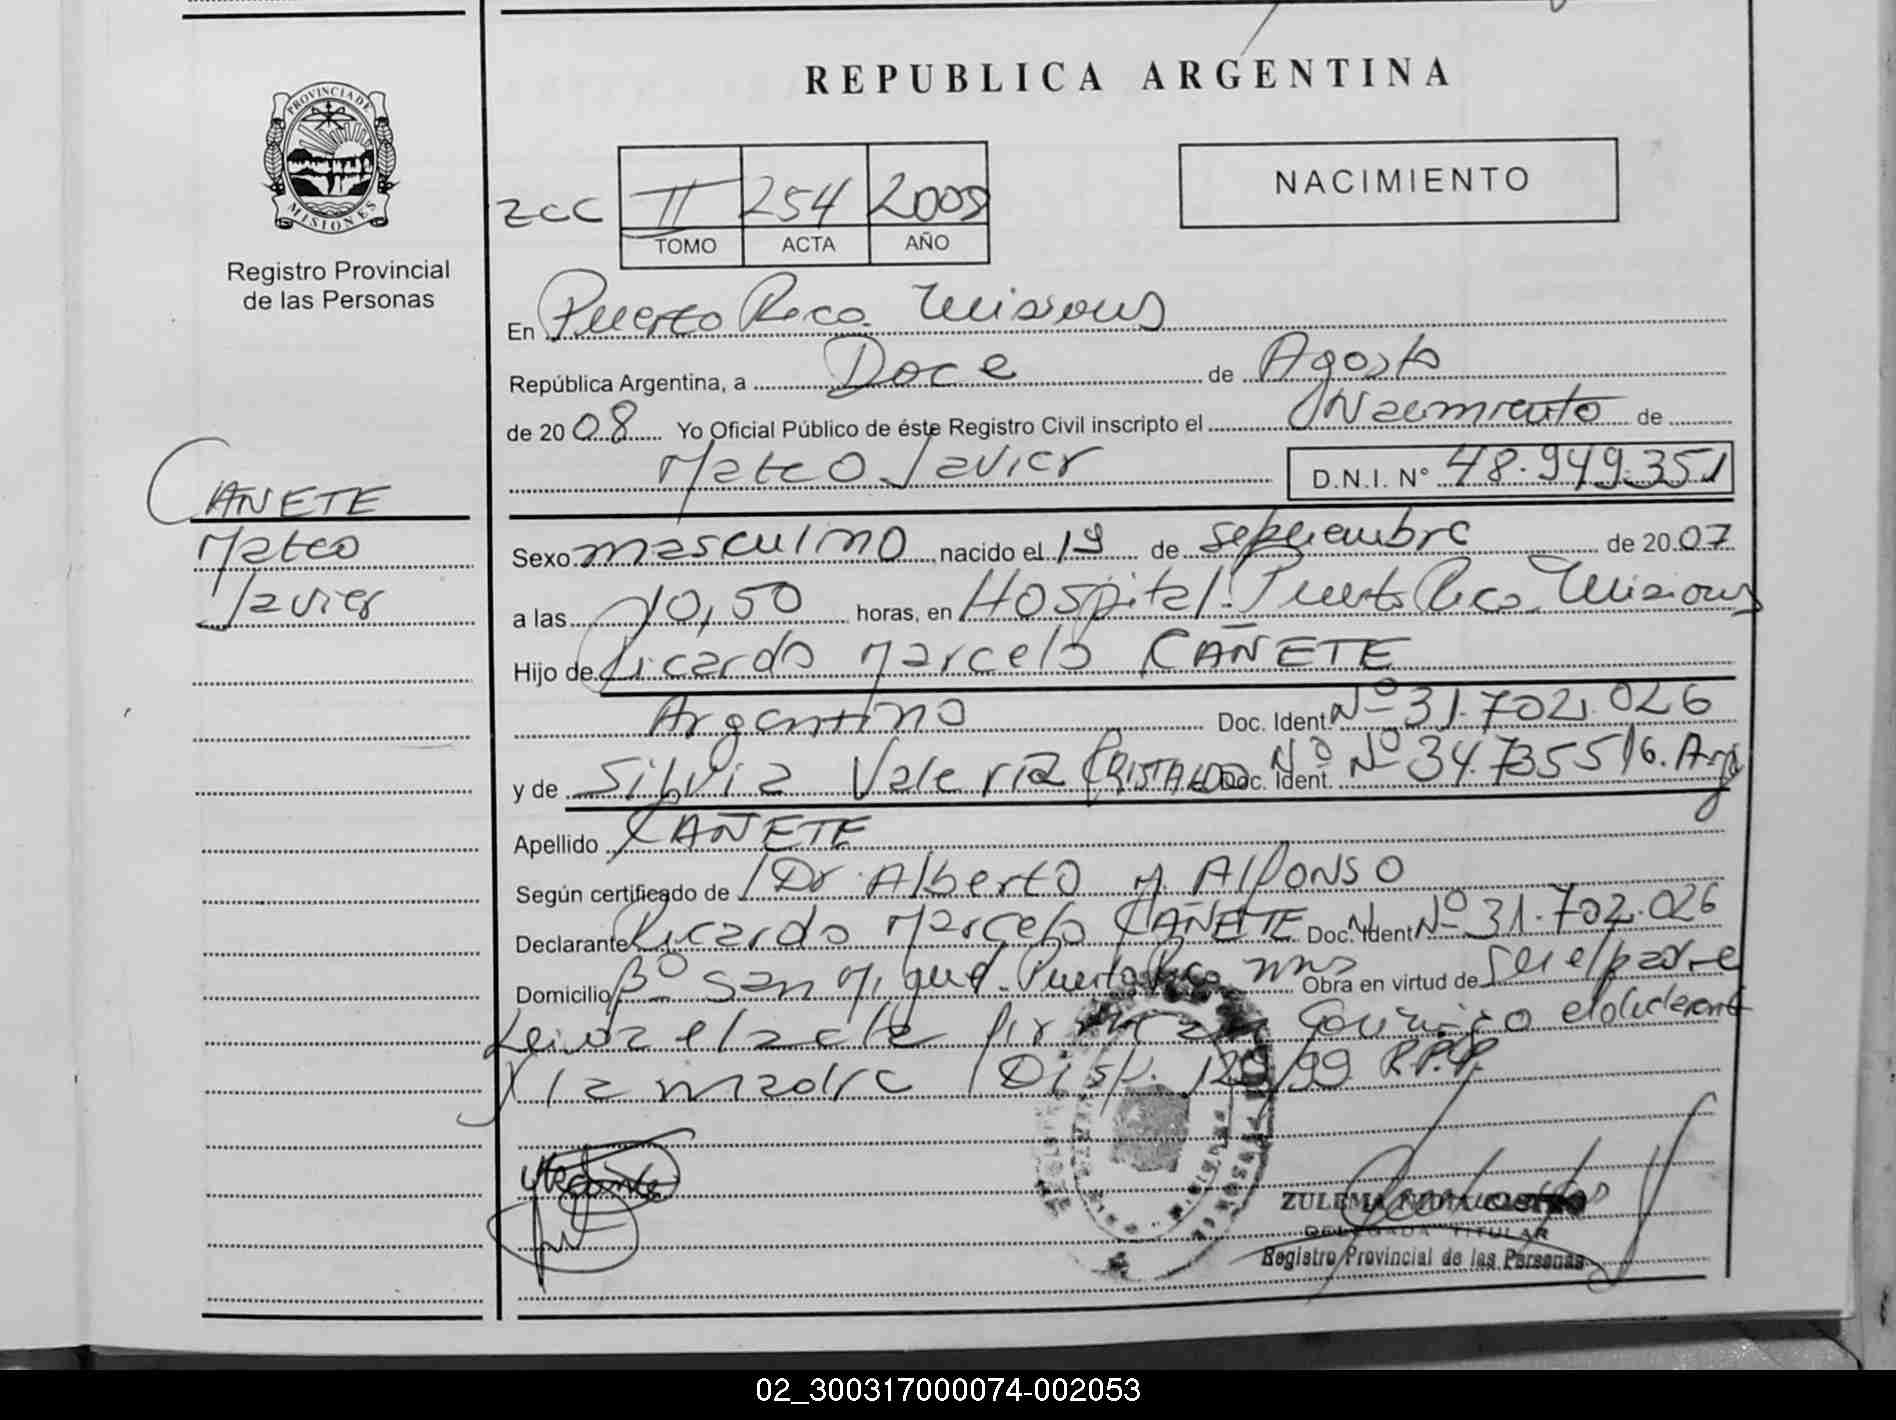 REPUBLICA ARGENTINA
PROVINCIA DE
MISIONES
Registro Provincial
de las Personas
NACIMIENTO
zcc II 254 2008
TOMO ACTA AÑO
En Puerto Rico. Misiones
República Argentina, a Doce de Agosto
de 2008 Yo Oficial Público de éste Registro Civil inscripto el Nacimiento de
Mateo Javier D.N.I. N° 48.949.351
CAÑETE
Mateo
Javier
Sexo masculino nacido el 19 de septiembre de 2007
a las 10,50 horas, en Hospital. Puerto Rico. Misiones
Hijo de Ricardo Marcelo CAÑETE
Argentino Doc. Ident. Nº 31.702.026
y de Silvia Valeria CRISTALDO Doc. Ident. Nº Nº 34.735516. Arg
Apellido CAÑETE
Según certificado de Dr. Alberto M. Alfonso
Declarante Ricardo Marcelo CAÑETE Doc. Ident Nº 31.702.026
Domicilio Bº San Miguel. Puerto Rico Mns Obra en virtud de ser el padre
Leida el acta firman conmigo el declarante
y la madre Disp. 129/99 R.P.P.
ZULEMA CASTRO
DELEGADA TITULAR
Registro Provincial de las Personas
02_300317000074-002053